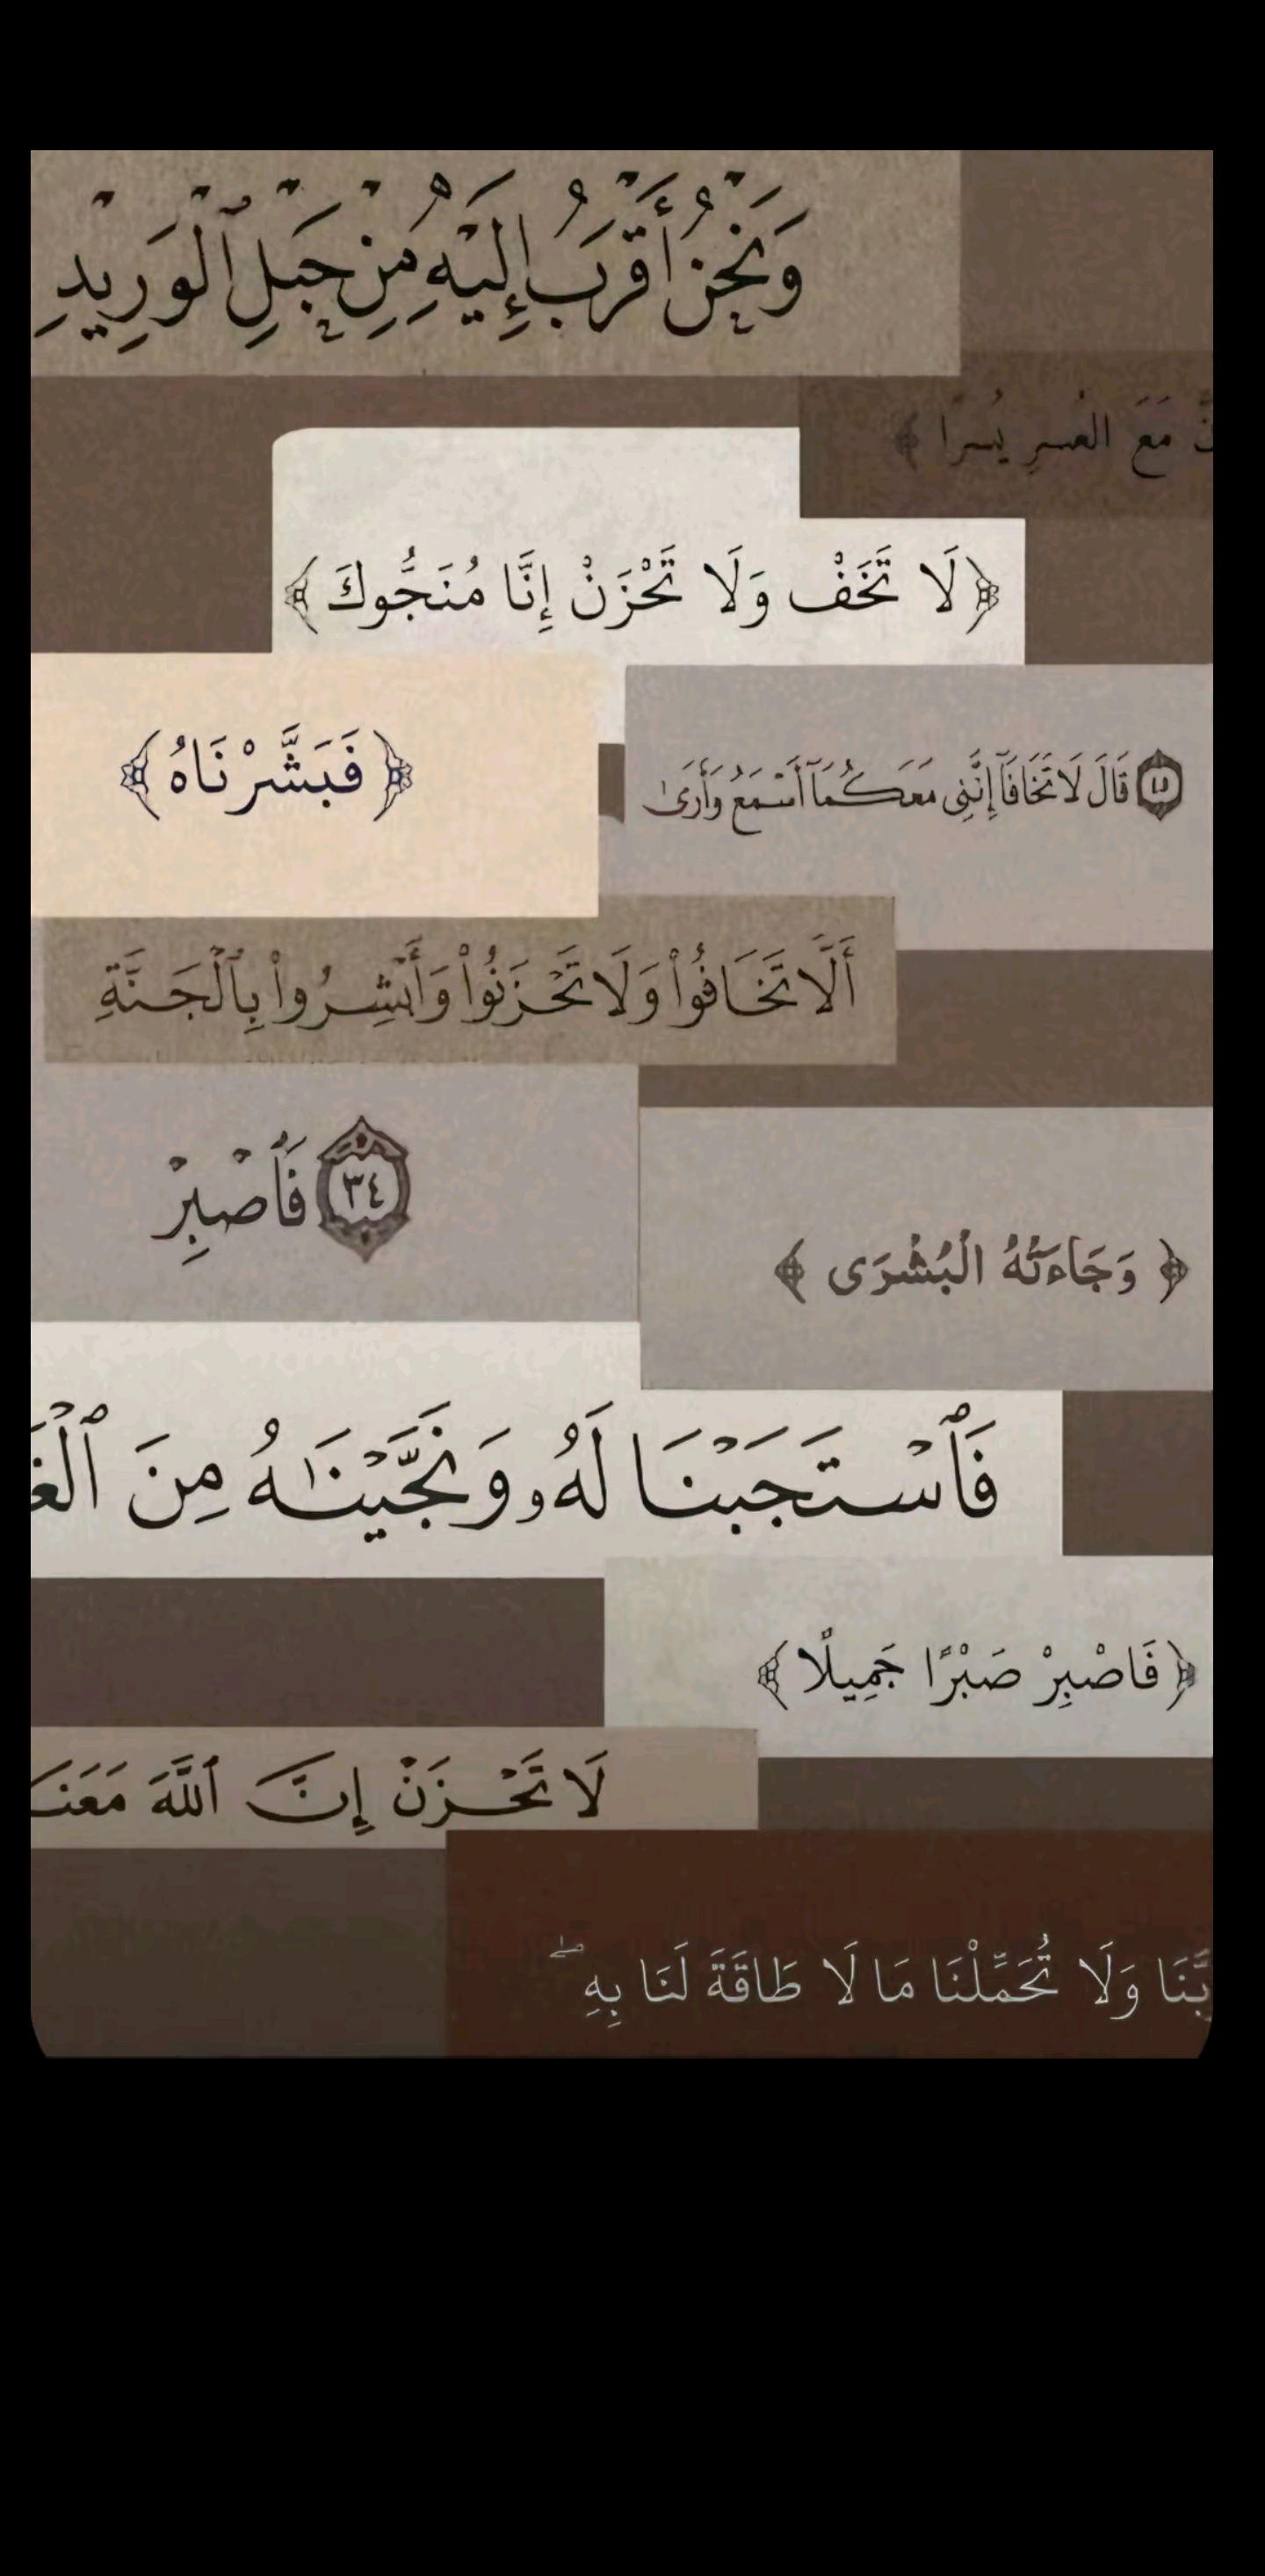 وَنَحْنُ أَقْرَبُ إِلَيْهِ مِنْ حَبْلِ ٱلْوَرِيدِ
مَعَ العُسرِ يُسرًا ﴾
﴿لَا تَخَفْ وَلَا تَحْزَنْ إِنَّا مُنَجُّوكَ﴾
﴿فَبَشَّرْنَاهُ﴾
٤٥ قَالَ لَا تَخَافَآ إِنَّنِى مَعَكُمَآ أَسْمَعُ وَأَرَىٰ
أَلَّا تَخَافُوا۟ وَلَا تَحْزَنُوا۟ وَأَبْشِرُوا۟ بِٱلْجَنَّةِ
٣٤ فَٱصْبِرْ
﴿ وَجَاءَتْهُ الْبُشْرَى ﴾
فَٱسْتَجَبْنَا لَهُۥ وَنَجَّيْنَٰهُ مِنَ ٱلْغَ
﴿فَاصْبِرْ صَبْرًا جَمِيلًا﴾
لَا تَحْزَنْ إِنَّ ٱللَّهَ مَعَنَا
بَّنَا وَلَا تُحَمِّلْنَا مَا لَا طَاقَةَ لَنَا بِهِ ۖ